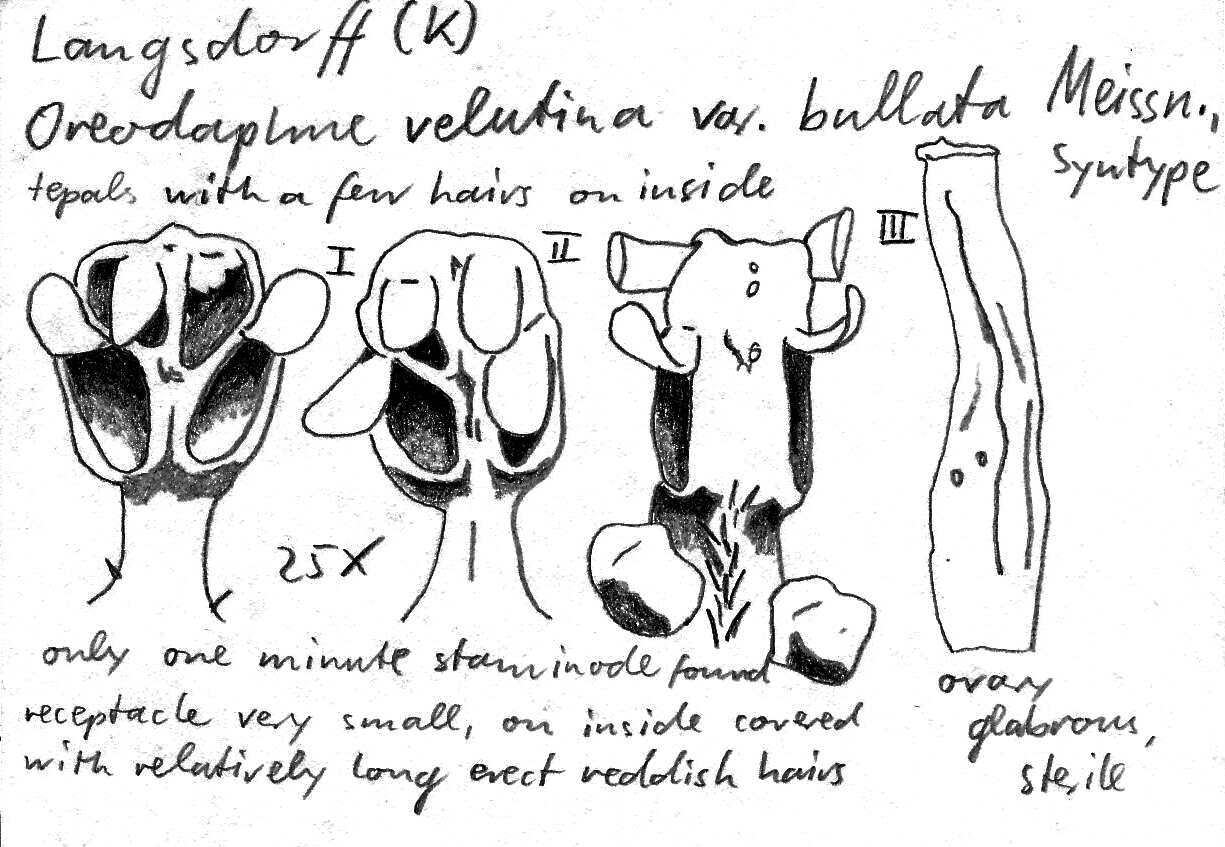 Langsdorff (K)
Oreodaphne velutina var. bullata Meissn.,
syntype
tepals with a few hairs on inside
I
II
III
25X
only one minute staminode found
receptacle very small, on inside covered
with relatively long erect reddish hairs
ovary
glabrous,
sterile